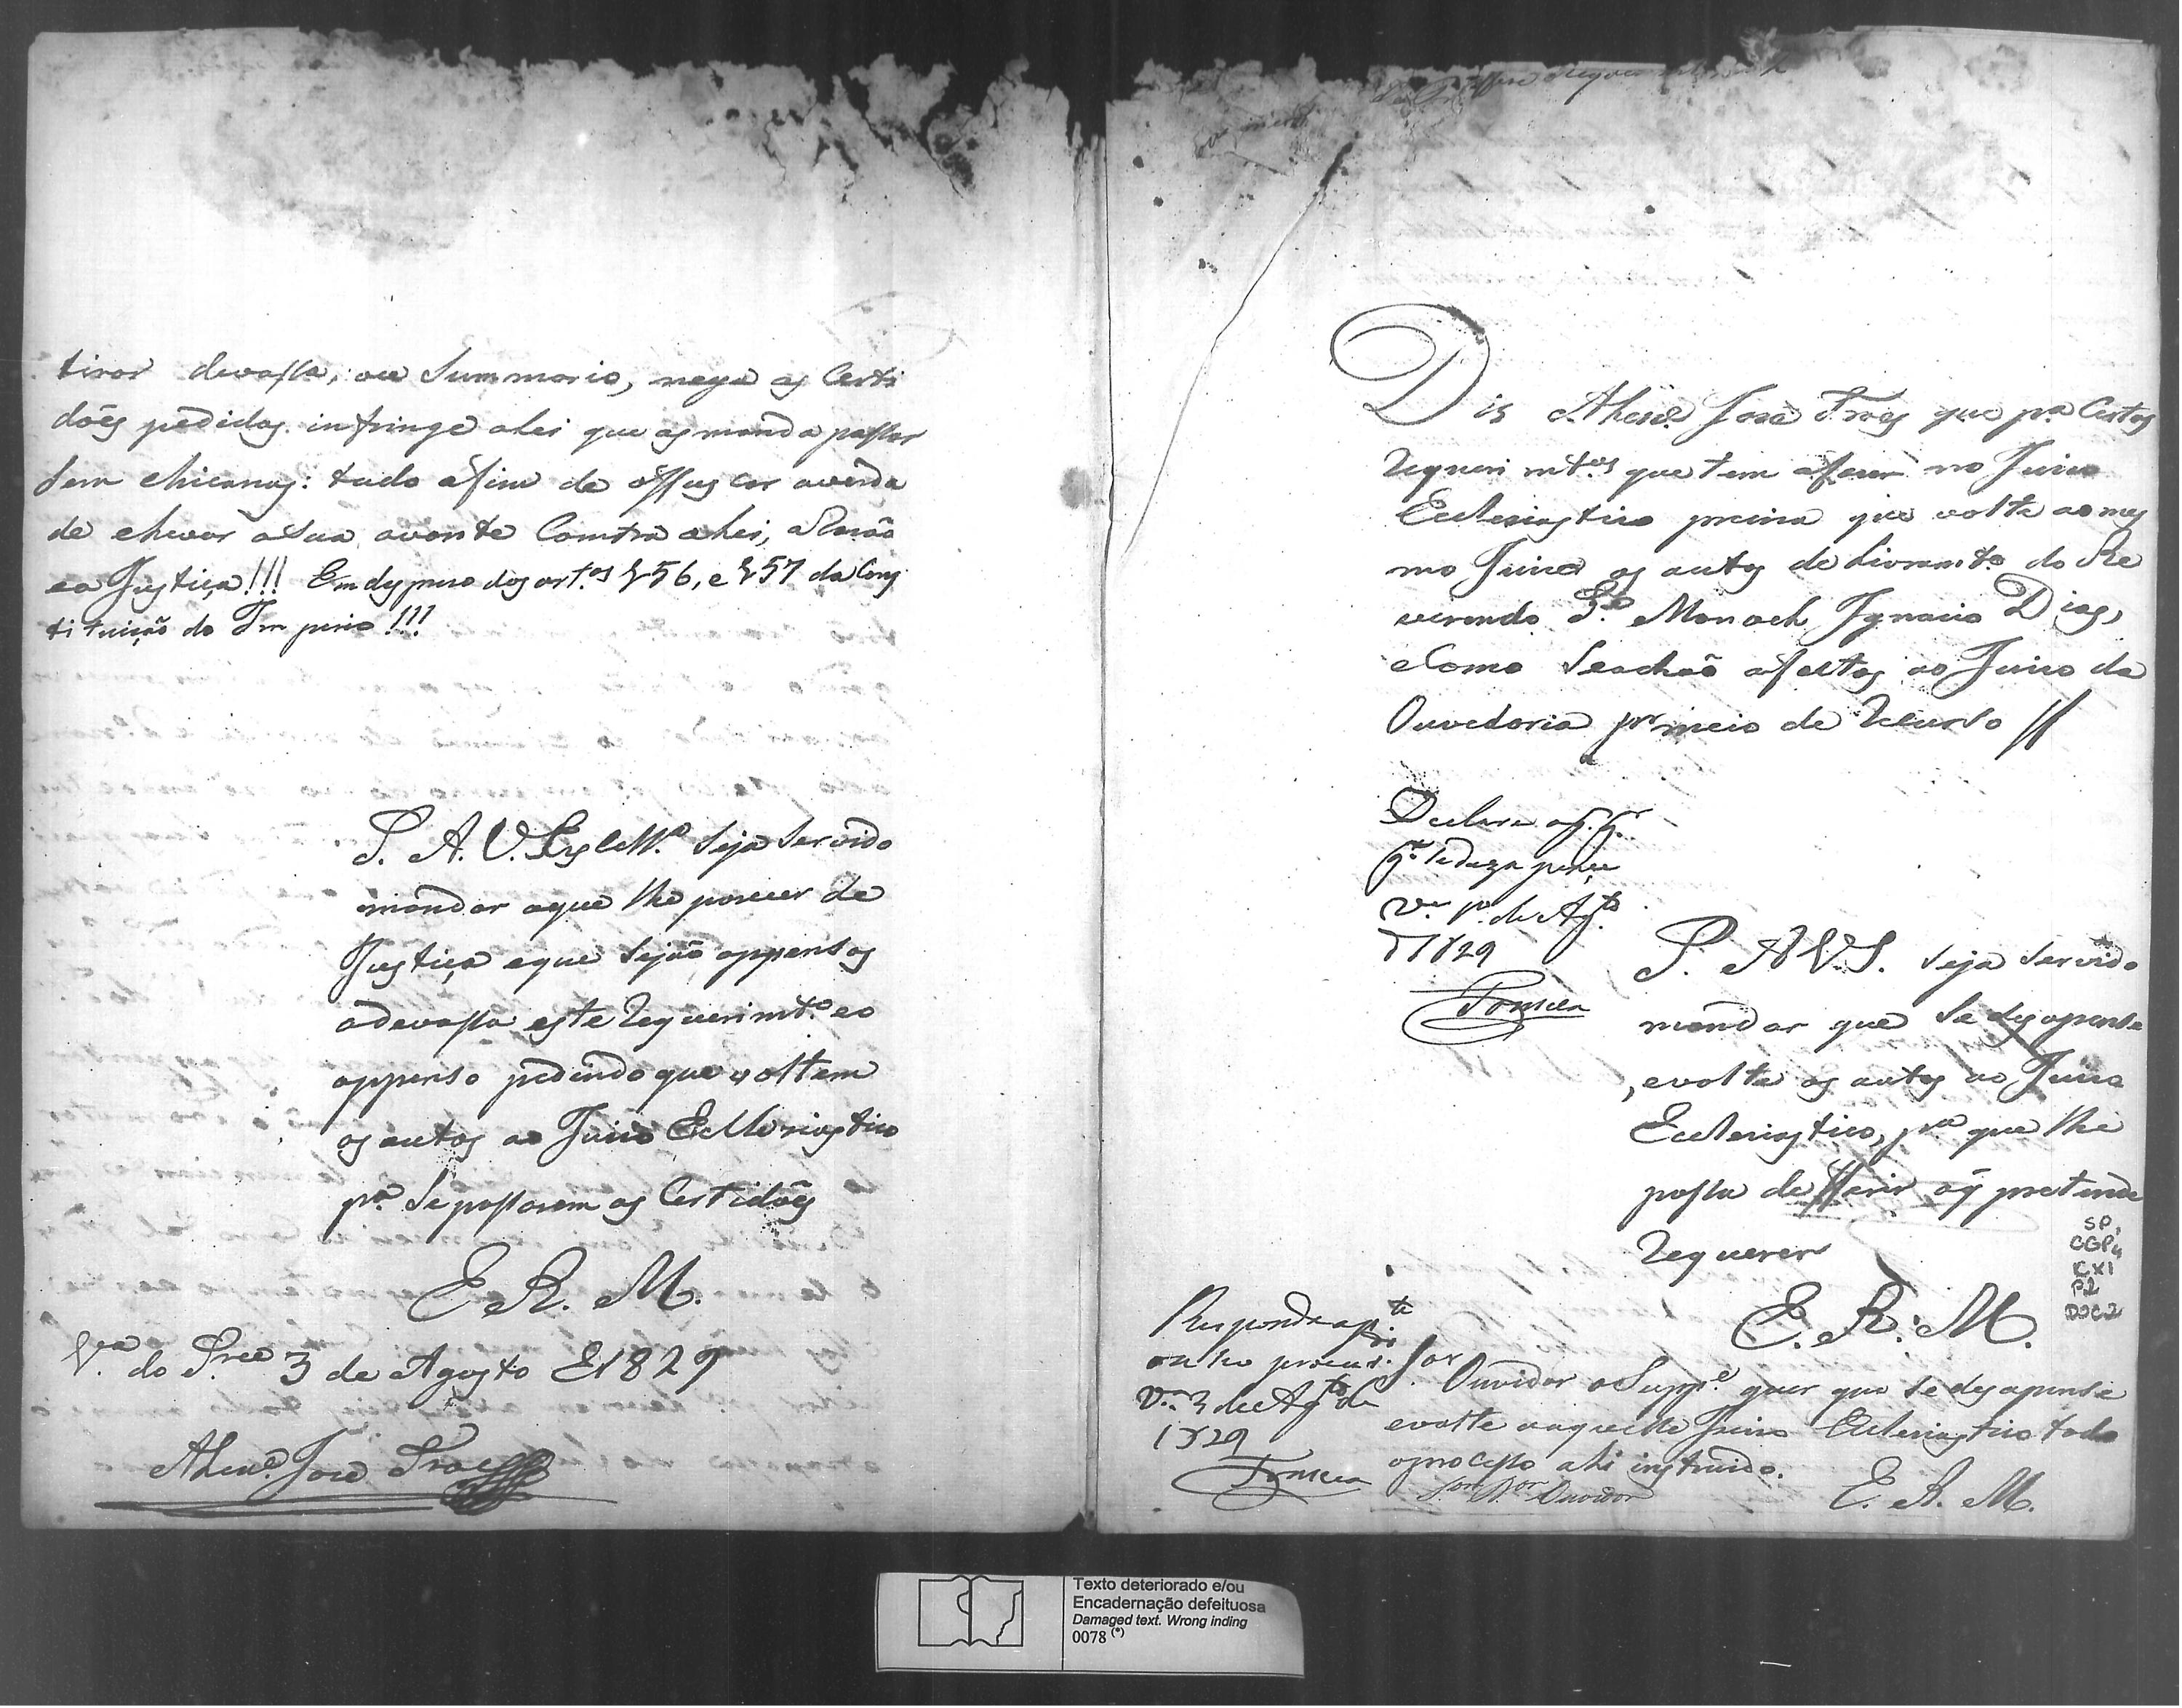 tirar devassa, ou Summario, nega as Certi
dões pedidas infringe a lei que as manda passar
sem chicanas: tudo afim de offuscar averda
de elevar a Sua avante Contra a lei, a Rasão
ea Justiça!!! Em despreso dos art.os 156, e 157 da Cons
tituição do Imperio!!!
P. A. V. Ex.cia seja servido
mandar aque lhe parecer de
Justiça eque sejão appensos
adevassa este Requerimt.o eo
appenso pedindo que voltem
os autos ao Juiso Ecclesiastico
p.a Sepassarem as Certidões
E. R. M.
V.a do 3 de Agosto E1829
José Froes
Dis José Froes que p.a Certos
Requerimt.os que tem afaser no Juiso
Ecclesiastico precisa que volte ao mes
mo Juiso os autos de Livramt.o do Re
verendo P.e Manoel Ignacio Dias,
eComo Seachão afectos ao Juiso da
Ouvedoria por meio de Recurso //
Declare
V.a p.o de Ag.to
D 1829
Fonseca
P. A V.S. seja servido
mandar que Se desapense
, evolte os autos ao Juiso
Ecclesiastico, p.a que lhe
possa defferir oq̃ pretende
Requerer
E. R. M.
SP,
CGP,
CX1
P2
DOC.2
Responda ap.te
V.a 3 de Ag.to de
1829
Fonseca
S.or Ouvidor o Supp.e quer que se desapense
evolte aaquelle Juiso Ecclesiastico todo
oprocesso ahi instruido.
E. R. M.
S.or D.or Ouvidor
Texto deteriorado e/ou
Encadernação defeituosa
Damaged text. Wrong inding
0078 (*)